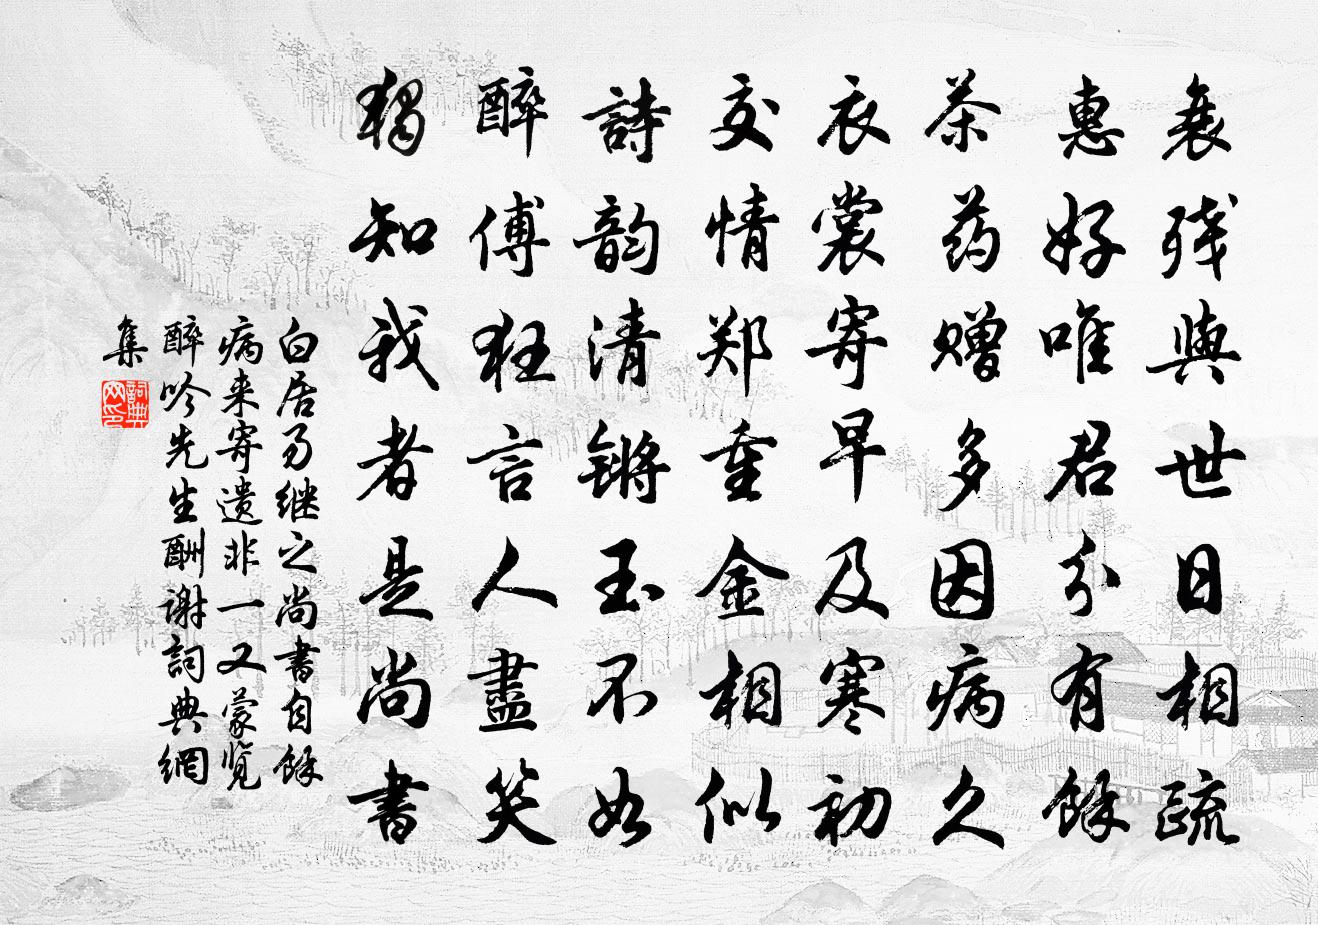 衰残與世日相疏
惠好唯君分有餘
茶药贈多因病久
衣裳寄早及寒初
交情郑重金相似
詩韵清锵玉不如
醉傅狂言人盡笑
獨知我者是尚書
白居易继之尚書自餘
病来寄遗非一又蒙览
醉吟先生酬谢詞典網
集